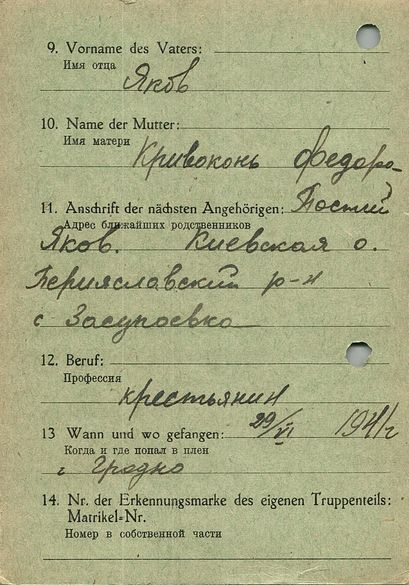 9. Vorname des Vaters:
Имя отца
Яков
10. Name der Mutter:
Имя матери
Кривоконь Федора
11. Anschrift der nächsten Angehörigen:
Адрес ближайших родственников
Яков. Киевская о.
Перияславский р-н
с Засупоевка
12. Beruf:
Профессия
крестьянин
13 Wann und wo gefangen: 29/VI 1941 г
Когда и где попал в плен
г. Гродно
14. Nr. der Erkennungsmarke des eigenen Truppenteils:
Matrikel-Nr.
Номер в собственной части